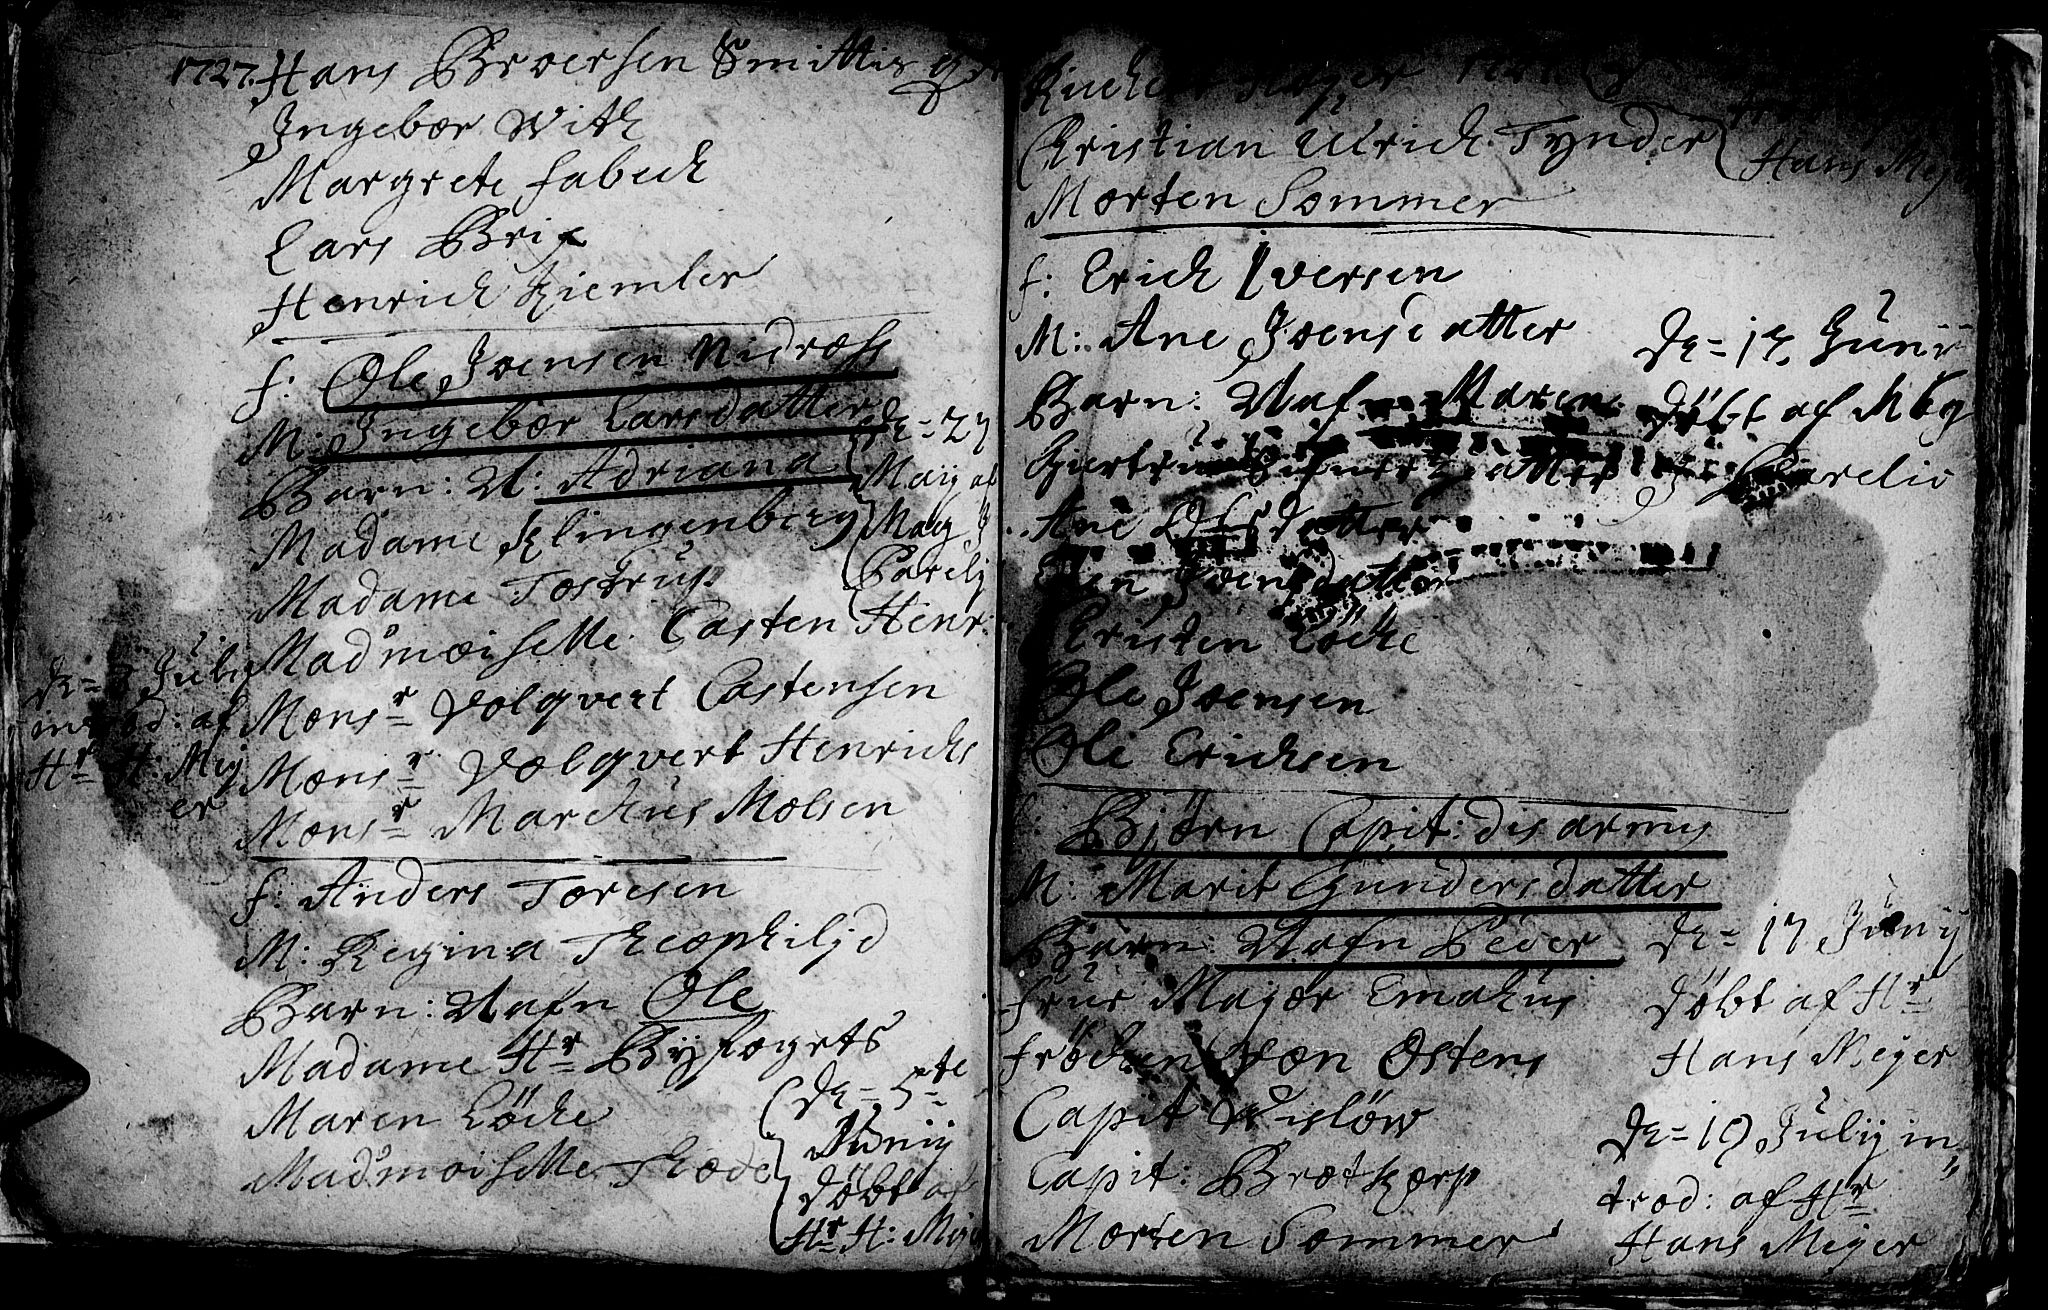 1727. Hans Broersen Smittis
Ingebær With
Margrete Fabeck
Lars Brix
Henrich Kiemler
f: Ole Joensen Nidroess
M: Ingebær Larsdatter
Barn: N: Adriana
Madame Klingenberg
Madame Tostrup
Madmoiselle Casten Henr:
Mons.r Volqvert Castensen
Mons.r Volqvert Henrichs
Mons.r Marckus Molsen
d= 27
Maij af
Mag J
Parelj
d= 3 Julij
introd: af
Hr H: Mej
er
f: Anders Toresen
M: Regina Theophiljd
Barn: Nafn Ole
Madame Hr Byfogets
Maren Löcke
Madmoiselle Thode
d= 5te
Junij
döbt af
Hr H: Mejer
Christian Ulrich Tynder
Hans Meje
Morten Sommer
f: Erich Iversen
M: Ane Joensdatter
Barn: Nafn Maren
d= 17 Junij
döbt af Mag
J Parelio
Ane Olsdatter
Joensdatter
Christen Löcke
Ole Joensen
Ole Erichsen
f: Bjørn Capit: dis armis
M: Marit Gundersdatter
Barn Nafn Peder
Frue Major Emahus
Fröcken von Ostens
Capit Wislöw
Capit: Brotkorp
Morten Sommer
d= 17 Junij
döbt af Hr
Hans Mejer
d= 19 Julij in
trod: af Hr
Hans Mejer